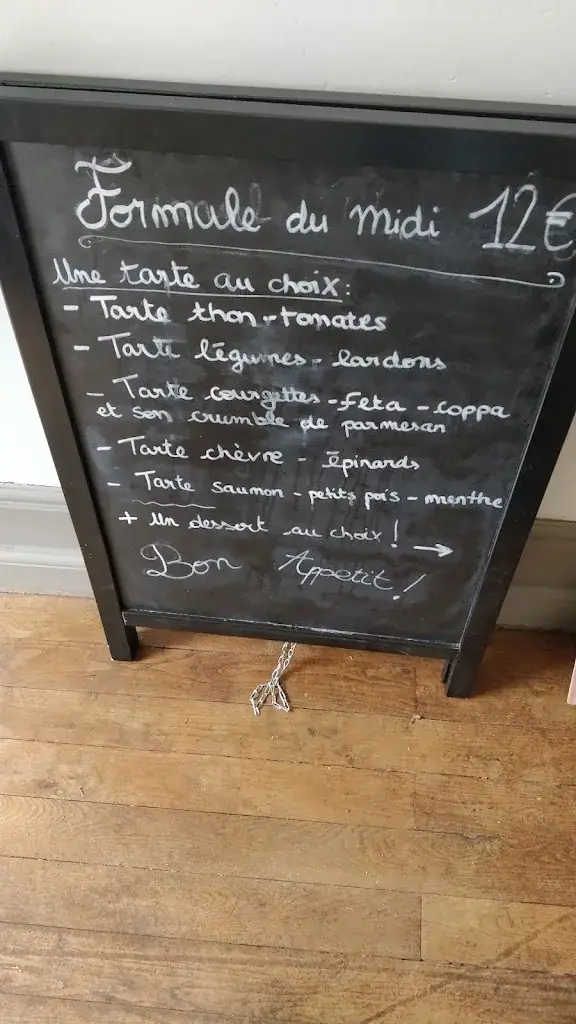 Formule du midi 12€
Une tarte au choix :
- Tarte thon - tomates
- Tarte légumes - lardons
- Tarte courgettes - feta - coppa
et son crumble de parmesan
- Tarte chèvre - épinards
- Tarte saumon - petits pois - menthe
+ Un dessert au choix ! →
Bon Appetit !